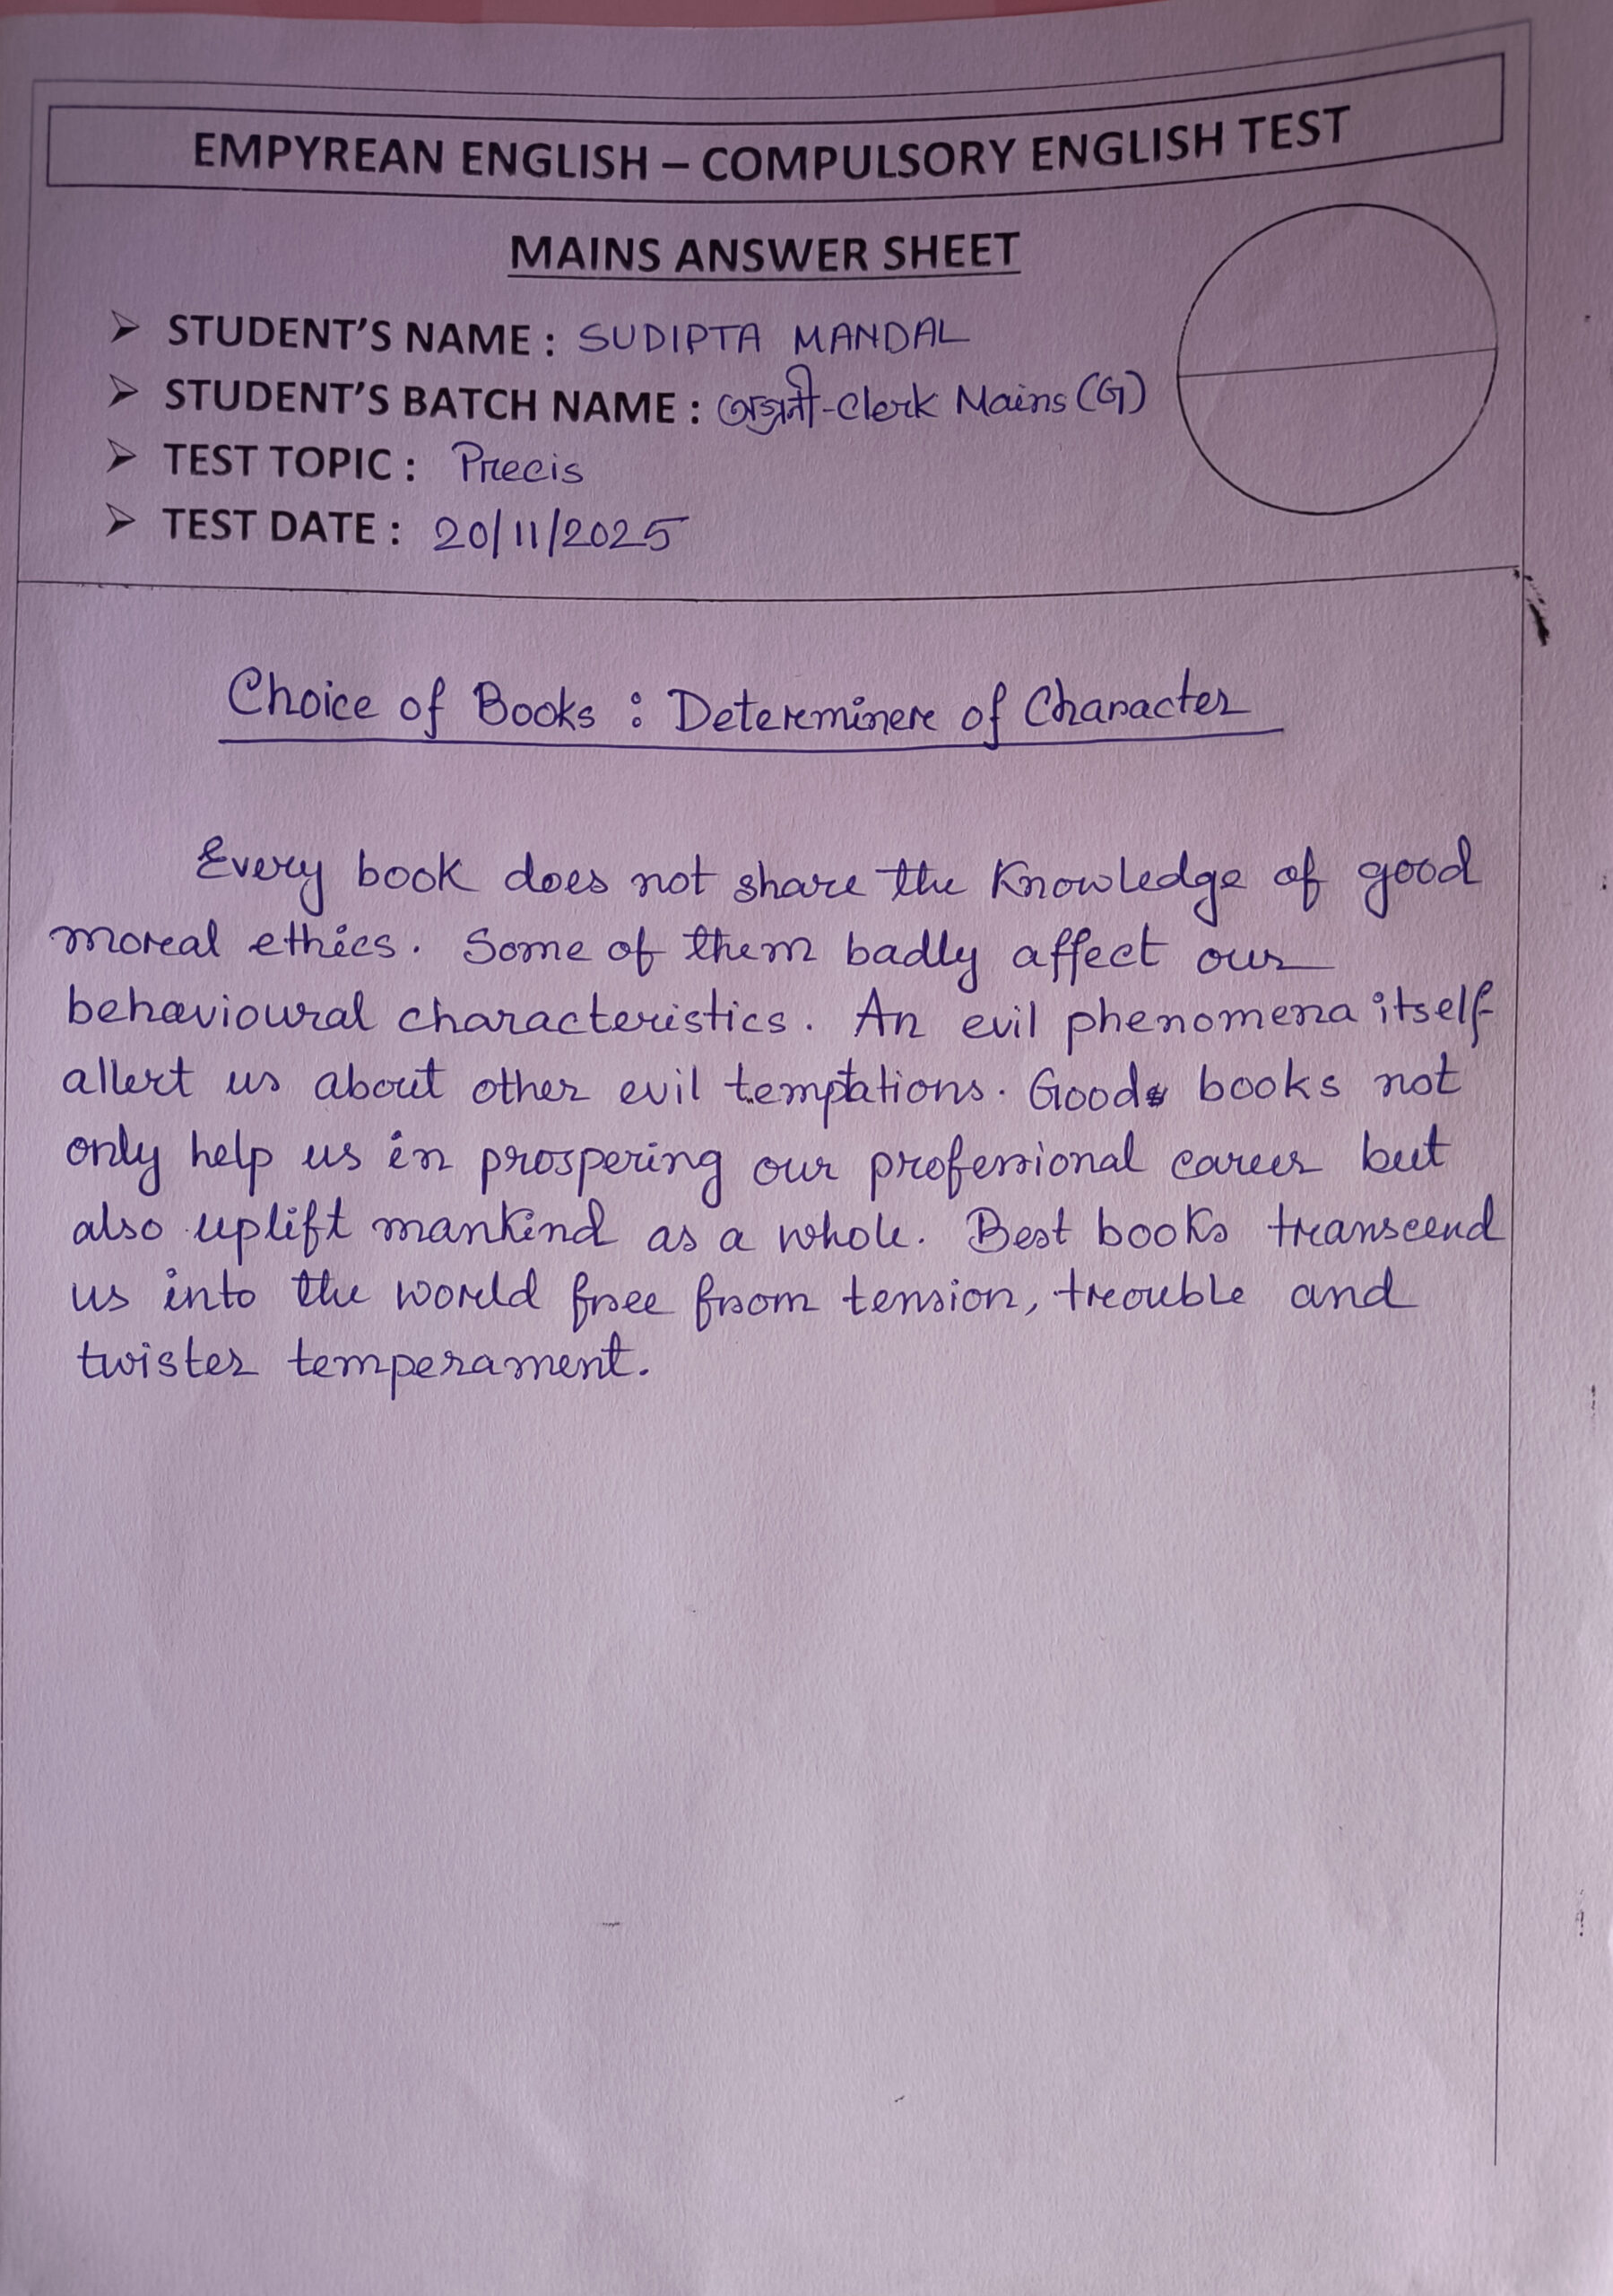 EMPYREAN ENGLISH – COMPULSORY ENGLISH TEST
MAINS ANSWER SHEET
➤ STUDENT'S NAME : SUDIPTA MANDAL
➤ STUDENT'S BATCH NAME : -Clerk Mains (G)
➤ TEST TOPIC : Precis
➤ TEST DATE : 20/11/2025
Choice of Books : Determiner of Character
Every book does not share the Knowledge of good
moral ethics. Some of them badly affect our
behavioural characteristics. An evil phenomena itself
allert us about other evil temptations. Good books not
only help us in prospering our professional career but
also uplift mankind as a whole. Best books transcend
us into the world free from tension, trouble and
twister temperament.